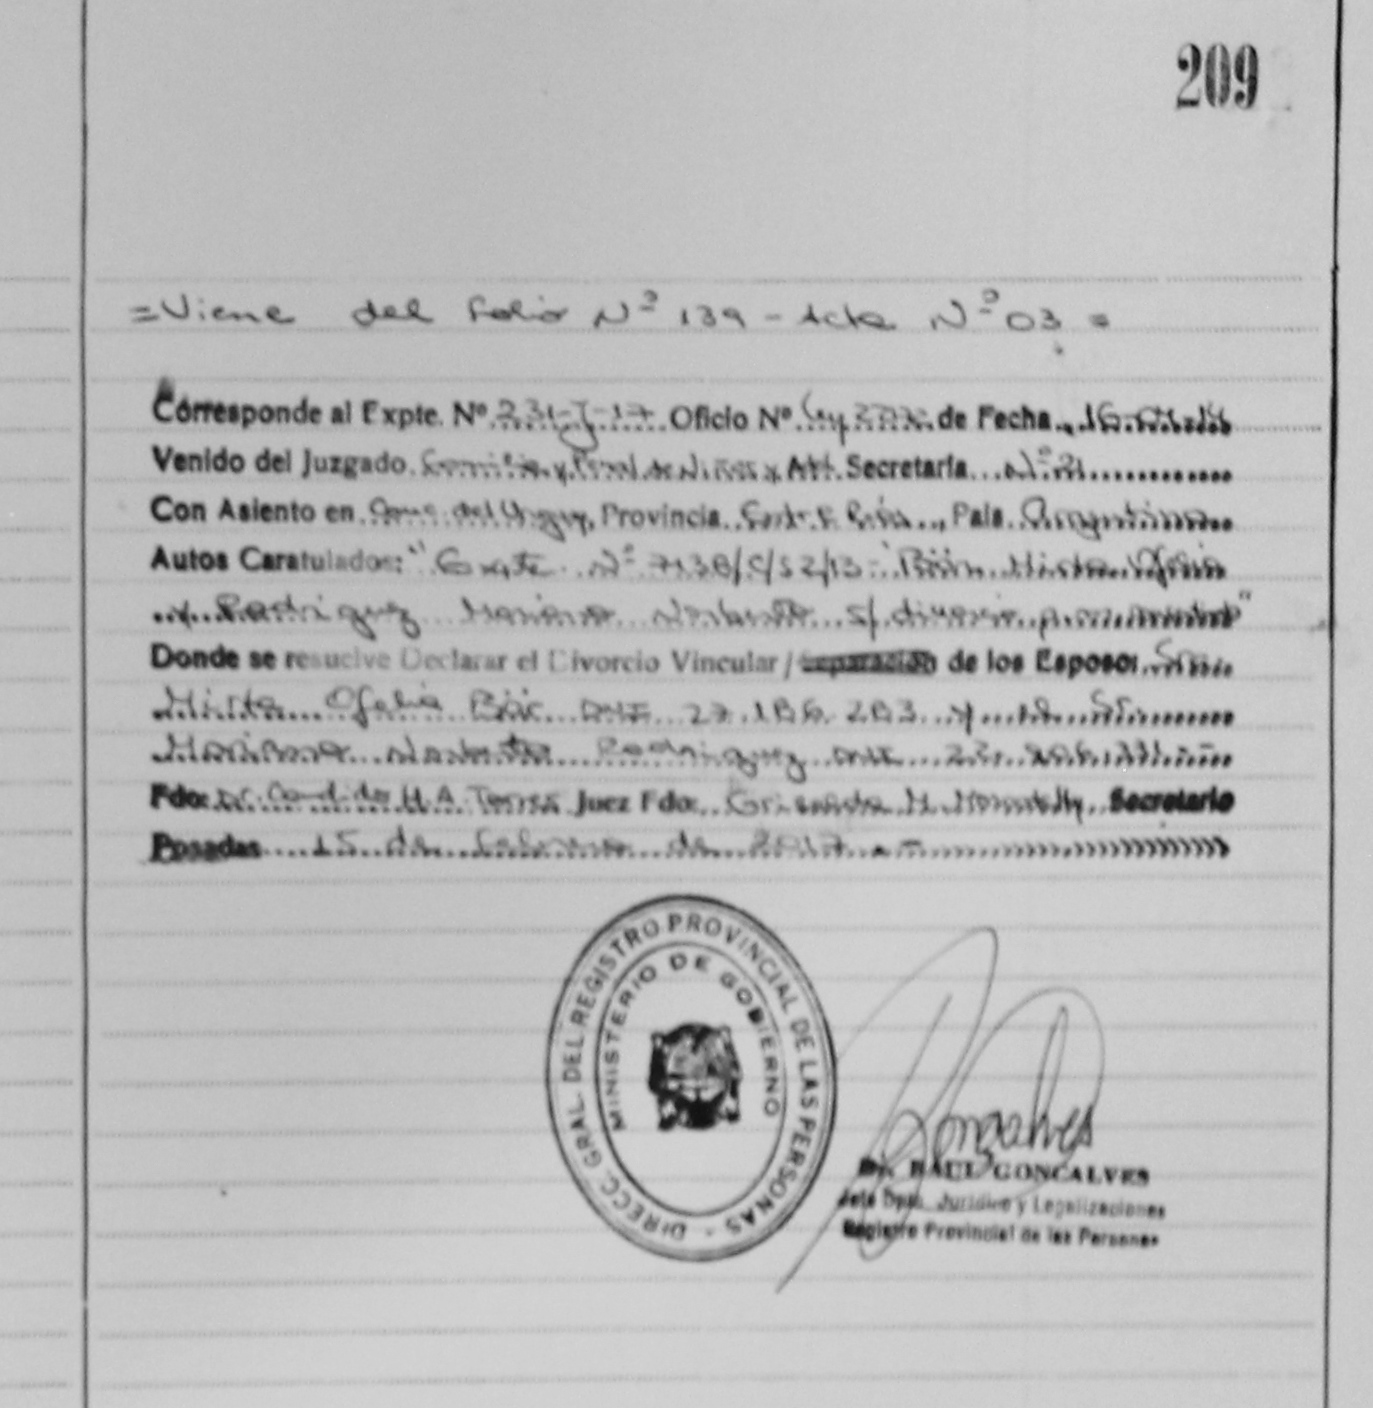 209
=Viene del Folio Nº 139 - Acta Nº 03 =
Corresponde al Expte. Nº 231-J-17 Oficio Nº Ley de Fecha
Venido del Juzgado Familia y Penal de Niños y Adl. Secretaría Nº 2
Con Asiento en Conc. del Urugy, Provincia Entre Ríos, País Argentina
Autos Caratulados: "Expte Nº 7138/C/S2/13- Mirta Ofelia
y Rodriguez Mariano Norberto s/ divorcio
Donde se resuelve Declarar el Divorcio Vincular / Separación de los Esposos Sra
Mirta Ofelia DNI 27.186.283 y Sr
Mariano Norberto Rodriguez DNI
Fdo: Dr. Candido H.A. Torres Juez Fdo: Griselda M. Secretario
Posadas 15 de Febrero de 2017.-
DIRECC. GRAL. DEL REGISTRO PROVINCIAL DE LAS PERSONAS -
MINISTERIO DE GOBIERNO
Gonçalves
Dr. RAUL GONCALVES
Jefe Dpto. Jurídico y Legalizaciones
Registro Provincial de las Personas